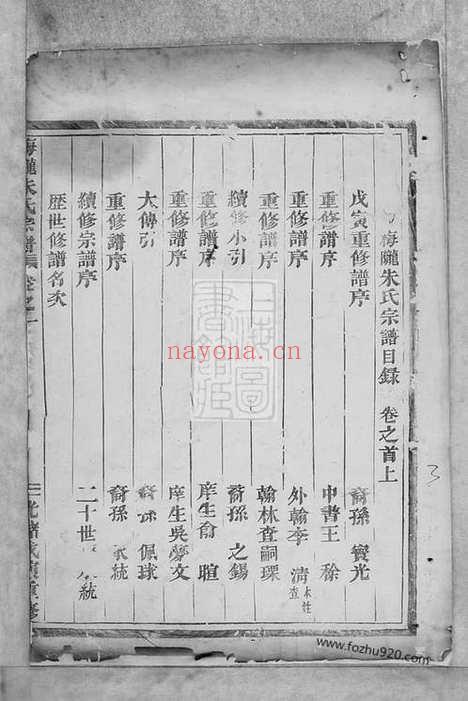 梅隴朱氏宗譜目録 卷之首上
戊寅重修譜序 裔孫 實光
重修譜序 中書王
重修譜序 外翰李 清
重修譜序 翰林查嗣瑮
續修小引 裔孫 之錫
重修譜序 庠生俞 暄
重修譜序 庠生吳夢文
大傳引 裔孫 佩球
重修譜序 裔孫 統
續修宗譜序 二十世 統
歷世修譜名次
梅隴朱氏宗譜 卷之
光緒戊寅重修
上海圖書館藏
nayona.cn
3
www.fozhu920.com